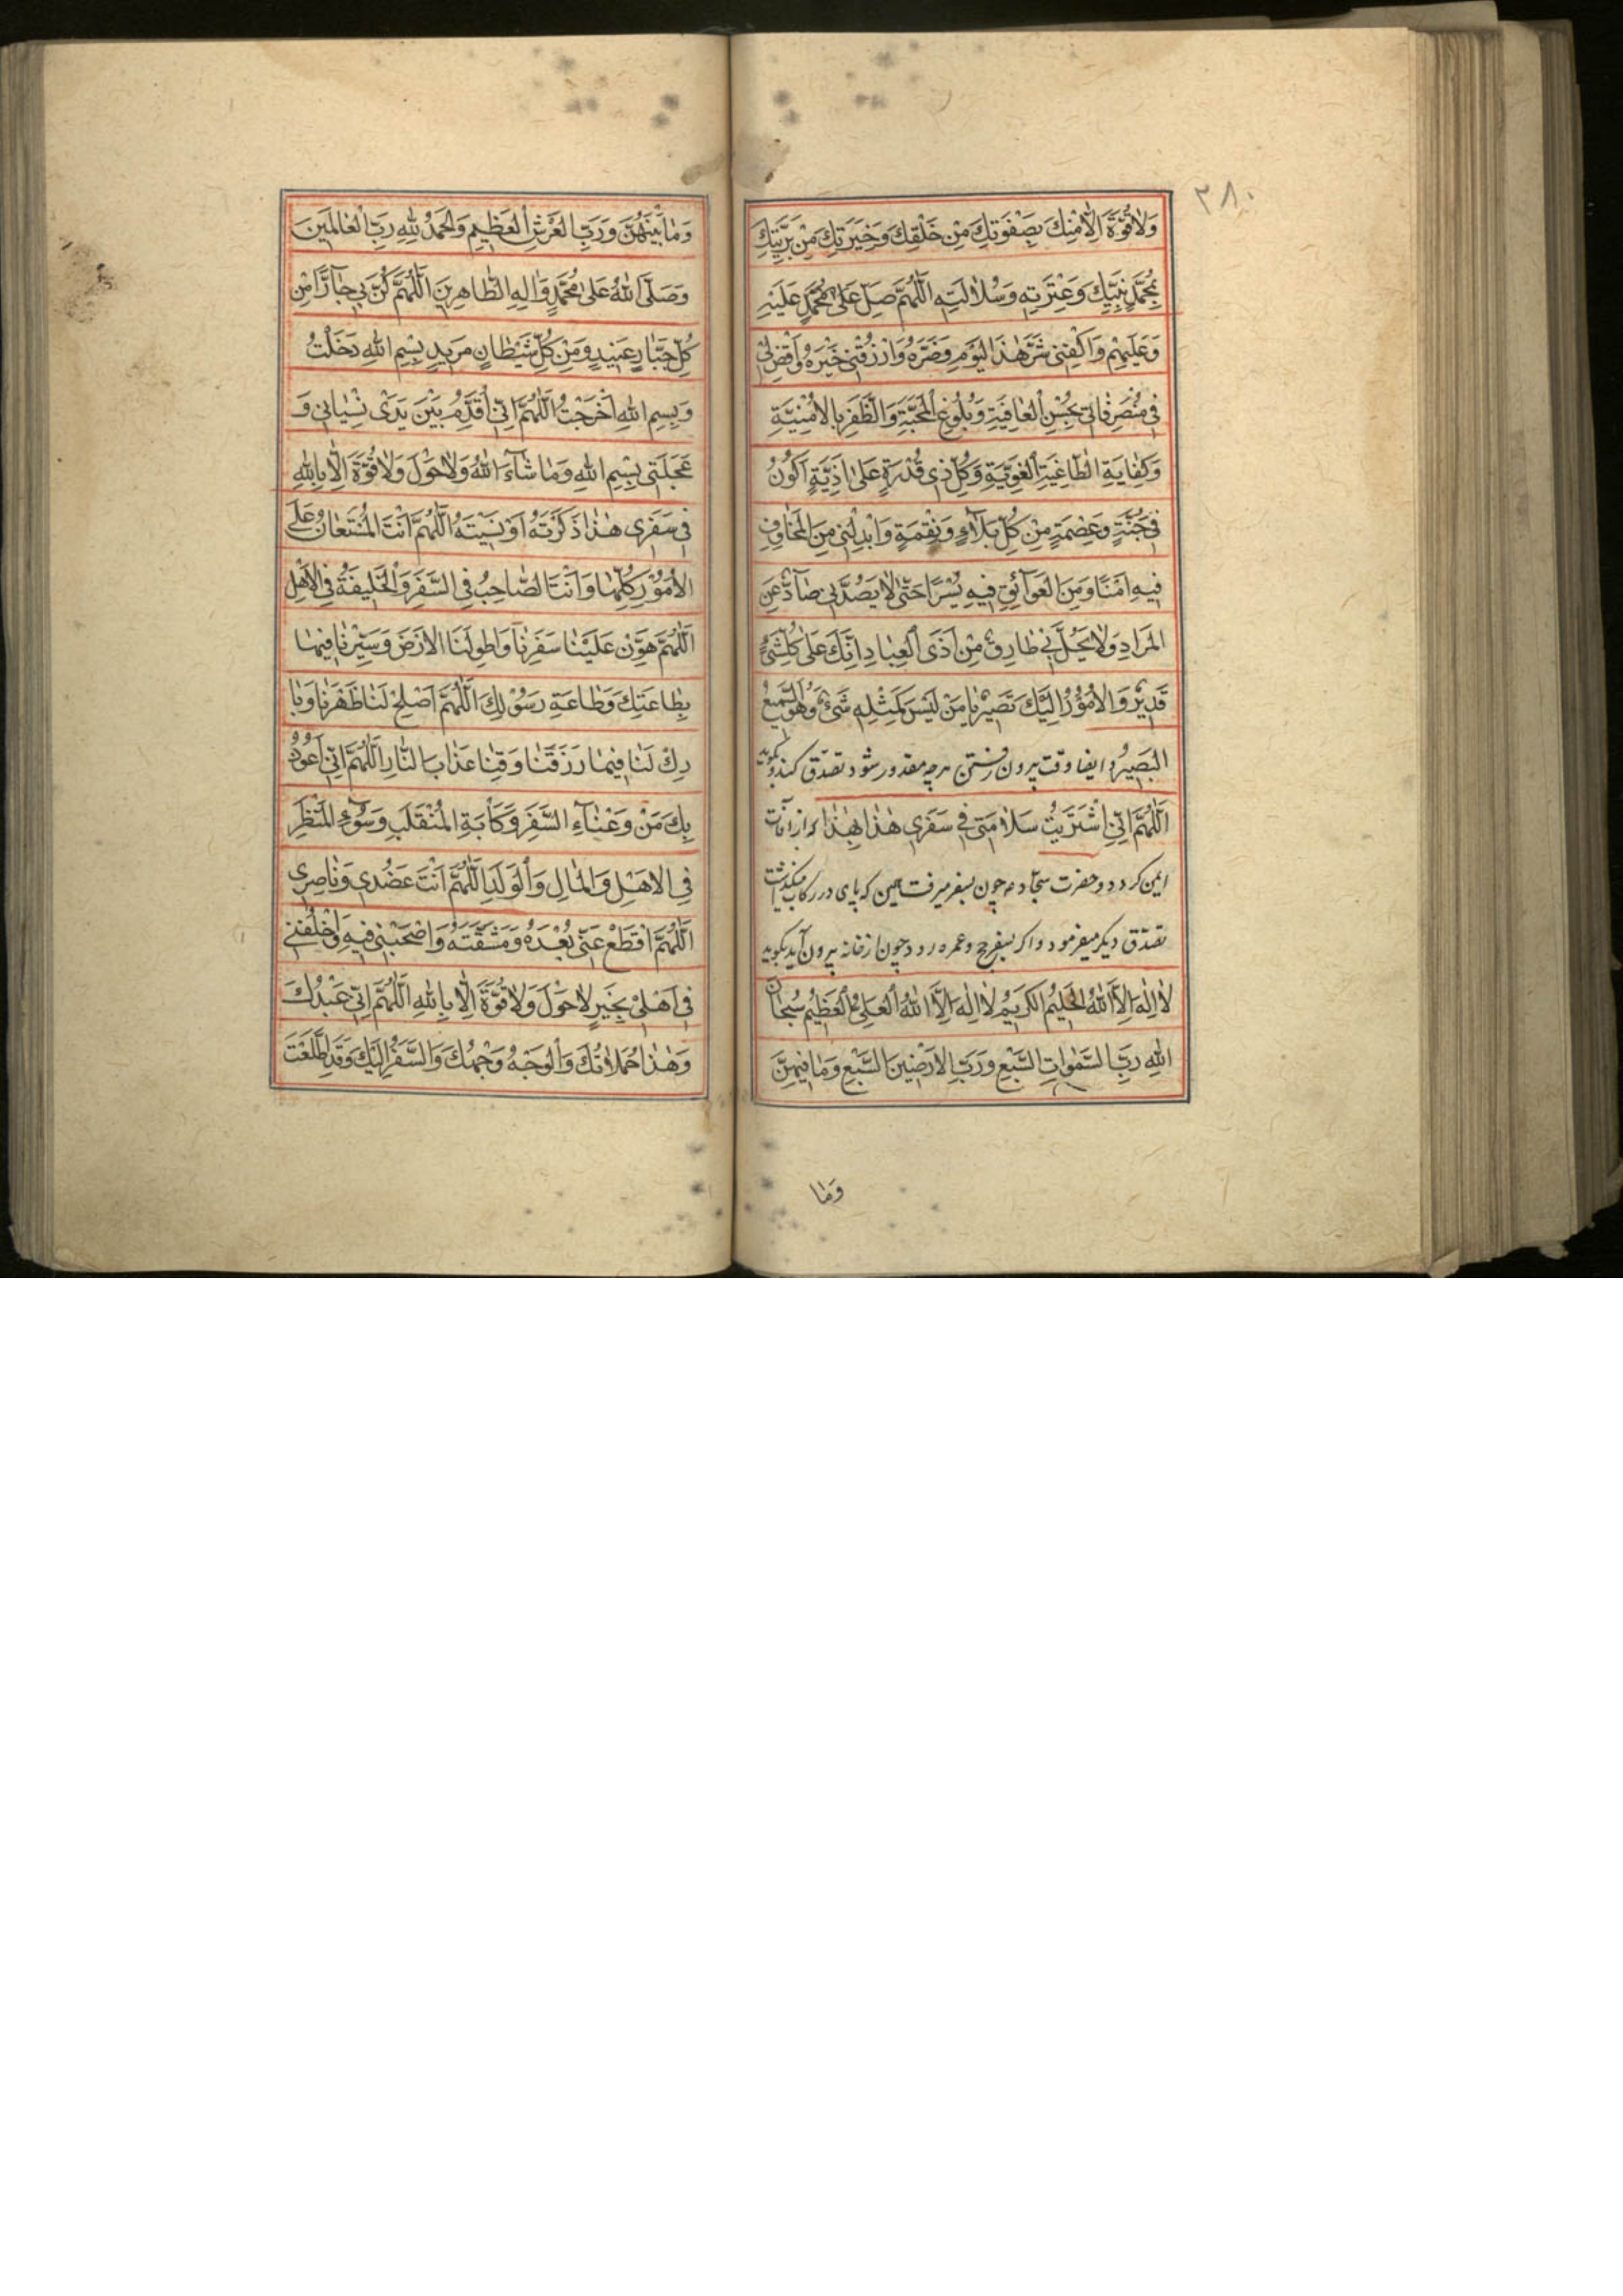 ۲۸۰
وَلَا قُوَّةَ اِلَّا مِنْكَ بِصَفْوَتِكَ مِنْ خَلْقِكَ وَخِيَرَتِكَ مِنْ بَرِيَّتِكَ
مُحَمَّدٍ نَبِيِّكَ وَعِتْرَتِهِ وَسُلَالَتِهِ اَللّٰهُمَّ صَلِّ عَلٰى مُحَمَّدٍ عَلَيْهِ
وَعَلَيْهِمْ وَاكْفِنِى شَرَّ هٰذَا الْيَوْمِ وَضَرَّهُ وَارْزُقْنِى خَيْرَهُ وَاقْضِ لِى
فِى مُنْصَرَفَاتِى بِحُسْنِ الْعَافِيَةِ وَبُلُوغِ الْمَحَبَّةِ وَالظَّفَرِ بِالْاُمْنِيَّةِ
وَكِفَايَةِ الطَّاغِيَةِ الْغَوِيَّةِ وَكُلِّ ذِى قُدْرَةٍ عَلٰى اَذِيَّةٍ اَكُونُ
فِى جُنَّةٍ وَعِصْمَةٍ مِنْ كُلِّ بَلَاۤءٍ وَنِقْمَةٍ وَاَبْدِلْنِى مِنَ الْمَخَاوِفِ
فِيهِ اَمْنًا وَمِنَ الْعَوَاۤئِقِ فِيهِ يُسْرًا حَتّٰى لَا يَصُدَّنِى صَاۤدٌّ عَنِ
الْمُرَادِ وَلَا يَحُلَّ بِى طَارِقٌ مِنْ اَذَى الْعِبَادِ اِنَّكَ عَلٰى كُلِّ شَىْءٍ
قَدِيرٌ وَالْاُمُورُ اِلَيْكَ تَصِيرُ يَا مَنْ لَيْسَ كَمِثْلِهِ شَىْءٌ وَهُوَ السَّمِيعُ
الْبَصِيرُ وايضا وقت بيرون رفتن هرچه مقدور شود تصدّق كند و بگويد
اَللّٰهُمَّ اِنِّى اشْتَرَيْتُ سَلَامَتِى فِى سَفَرِى هٰذَا بِهٰذَا كه از آفات
ايمن گردد و حضرت سجّاد ع چون بسفر ميرفت همين كه پاى در ركاب ميگذاشت
تصدّق ديگر ميفرمود و اگر بسفر حج و عمره رود چون از خانه بيرون آيد بگويد
لَا اِلٰهَ اِلَّا اللّٰهُ الْحَلِيمُ الْكَرِيمُ لَا اِلٰهَ اِلَّا اللّٰهُ الْعَلِىُّ الْعَظِيمُ سُبْحَانَ
اللّٰهِ رَبِّ السَّمٰوَاتِ السَّبْعِ وَرَبِّ الْاَرَضِينَ السَّبْعِ وَمَا فِيهِنَّ
وَمَا
وَمَا بَيْنَهُنَّ وَرَبِّ الْعَرْشِ الْعَظِيمِ وَالْحَمْدُ لِلّٰهِ رَبِّ الْعَالَمِينَ
وَصَلَّى اللّٰهُ عَلٰى مُحَمَّدٍ وَاٰلِهِ الطَّاهِرِينَ اَللّٰهُمَّ كُنْ بِى جَارًّا مِنْ
كُلِّ جَبَّارٍ عَنِيدٍ وَمِنْ كُلِّ شَيْطَانٍ مَرِيدٍ بِسْمِ اللّٰهِ دَخَلْتُ
وَبِسْمِ اللّٰهِ اَخْرَجْتُ اَللّٰهُمَّ اِنِّى اُقَدِّمُ بَيْنَ يَدَىْ نِسْيَانِى وَ
عَجَلَتِى بِسْمِ اللّٰهِ وَمَا شَاۤءَ اللّٰهُ وَلَا حَوْلَ وَلَا قُوَّةَ اِلَّا بِاللّٰهِ
فِى سَفَرِى هٰذَا ذَكَرْتُهُ اَوْ نَسِيتُهُ اَللّٰهُمَّ اَنْتَ الْمُسْتَعَانُ عَلَى
الْاُمُورِ كُلِّهَا وَاَنْتَ الصَّاحِبُ فِى السَّفَرِ وَالْخَلِيفَةُ فِى الْاَهْلِ
اَللّٰهُمَّ هَوِّنْ عَلَيْنَا سَفَرَنَا وَاطْوِ لَنَا الْاَرْضَ وَسَيِّرْنَا فِيهَا
بِطَاعَتِكَ وَطَاعَةِ رَسُولِكَ اَللّٰهُمَّ اَصْلِحْ لَنَا ظَهْرَنَا وَبَا
رِكْ لَنَا فِيمَا رَزَقْتَنَا وَقِنَا عَذَابَ النَّارِ اَللّٰهُمَّ اِنِّى اَعُوذُ
بِكَ مَنْ وَعْنَاۤءِ السَّفَرِ وَكَاٰبَةِ الْمُنْقَلَبِ وَسُوۤءِ الْمَنْظَرِ
فِى الْاَهْلِ وَالْمَالِ وَالْوَلَدِ اَللّٰهُمَّ اَنْتَ عَضُدِى وَنَاصِرِى
اَللّٰهُمَّ اقْطَعْ عَنِّى بُعْدَهُ وَمَشَقَّتَهُ وَاصْحَبْنِى فِيهِ وَاخْلُفْنِى
فِى اَهْلِى بِخَيْرٍ لَا حَوْلَ وَلَا قُوَّةَ اِلَّا بِاللّٰهِ اَللّٰهُمَّ اِنِّى عَبْدُكَ
وَهٰذَا حُمْلَانُكَ وَالْوَجْهُ وَجْهُكَ وَالسَّفَرُ اِلَيْكَ وَقَدِ اطَّلَعْتَ